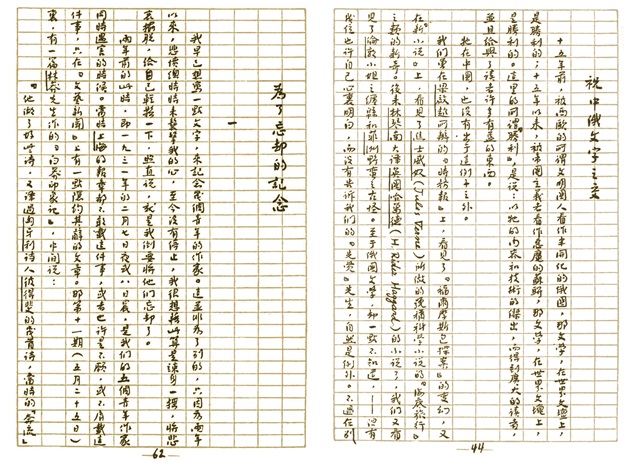 祝中俄文字之交
十五年前，被西歐的所謂文明國人看作半開化的俄國，那文學，在世界文壇上，
是勝利的；十五年以來，被帝國主義者看作惡魔的蘇聯，那文學，在世界文壇上，
是勝利的。這里的所謂『勝利』，是說：以牠的內容和技術的傑出，而得到廣大的讀者，
並且給與了讀者許多有益的東西。
牠在中國，也沒有出于這例子之外。
我們曾在梁啟超所辦的『時務報』上，看見了『福爾摩斯包探案』的變幻，又
在『新小說』上，看見了焦士威奴(Jules Verne)所做的號稱科學小說的『海底旅行』
之類的新奇。後來林琴南大譯英國哈葛德(H. Rider Haggard)的小說了，我們又看
見了倫敦小姐之纏綿和菲洲野蠻之古怪。至于俄國文學，却一點不知道，——但有
幾位也許自己心裏明白，而沒有告訴我們的『先覺』先生，自然是例外。不過在別
44
為了忘却的記念
一
我早已想寫一點文字，來記念幾個青年的作家。這並非為了別的，只因為兩年
以來，悲憤總時時來襲擊我的心，至今沒有停止，我很想藉此算是竦身一搖，將悲
哀擺脫，給自己輕鬆一下，照直說，就是我倒要將他們忘却了。
兩年前的此時，即一九三一年的二月七日夜或八日晨，是我們的五個青年作家
同時遇害的時候。當時上海的報章都不敢載這件事，或者也許是不願，或不屑載這
件事，只在『文藝新聞』上有一點隱約其辭的文章。那第十一期（五月二十五日）
裏，有一篇林莽先生作的『白莽印象記』，中間說：
『他做了好些詩，又譯過匈牙利詩人彼得斐的幾首詩，當時的『奔流』
62